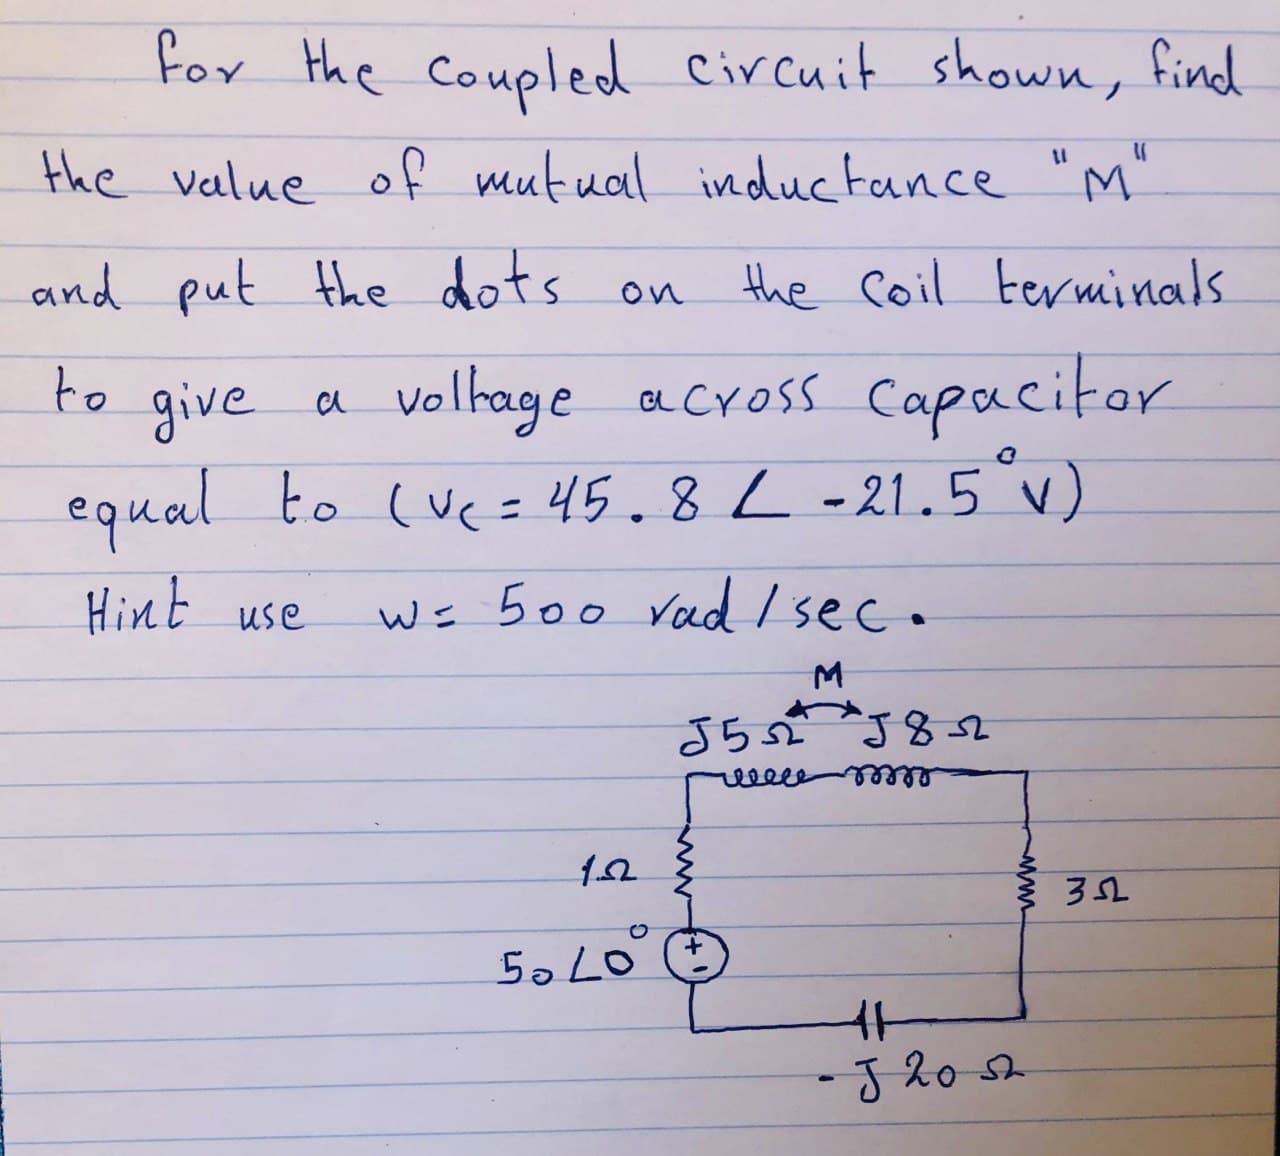 for the coupled circuit shown, find
the value of mutual inductance "M"
and put the dots on the coil terminals
to give a voltage across capacitor
equal to (vc = 45.8 ∠ -21.5° v)
Hint use w = 500 rad/sec.
M
J5Ω J8Ω
1Ω
3Ω
50∠0°
+
-
-J20Ω